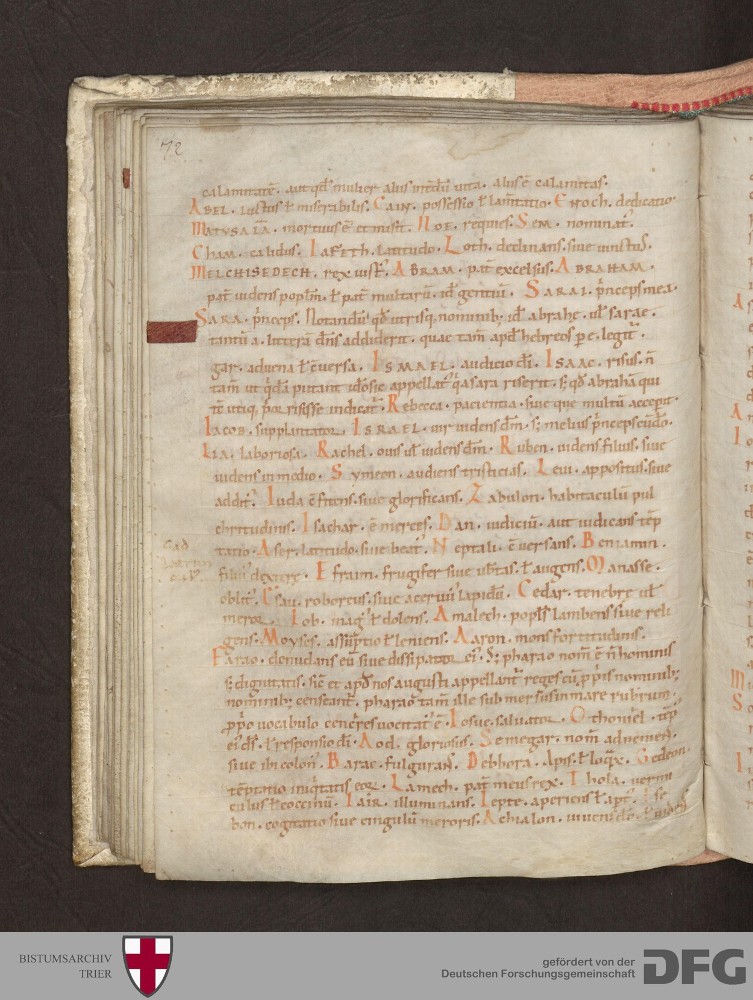 72
calamitatē. aut qđ mulier alus intdū uita. alus ē calamitas.
ABEL. luctus ł miserabilis. Cain. possessio ł lam̄tatio. Enoch. dedicatio
MATUSALA. mortuus ē et misit. NOE. requies. SEM. nominat᷑.
Cham. calidus. IAFETH. latitudo. Loth. declinans. siue uinctus.
MELCHISEDECH. rex iust᷑. ABRAM. pat̄ excelsus. ABRAHAM.
pat̄ uidens poplm̄. ł pat̄ multarū. id gentiū. SARAI. p̄nceps mea.
SARA. p̄nceps. Notandū qđ utrisq; nominib; id abrahę. uł sarae.
tantū a. litterā dn̄s addiderit. quae tam̄ apđ hebreos p e. legit᷑.
gar. aduena ł ēuersa. ISMAEL. audicio dī. ISAAC. risus. n̄
tam̄ ut qdā putant ideo sic appellat᷑ qa sara riserit. s; qđ abrahā qui
tē utiq; p̄or risisse indicat᷑. Rebecca. pacientia. siue que multū accepit.
IACOB. supplantator. ISRAEL. uir uidens dm̄. s; melius p̄nceps cū dō.
LIA. laboriosa. Rachel. ouis uł uidens dm̄. Ruben. uidens filius. siue
uidens in medio. Symeon. audiens tristicias. Leui. appositus. siue
addit᷑. Iuda ēfitens. siue glorificans. Zabulon. habitaculū pul
chritudinis. Isachar. ē merces. Dan. iudiciū. aut iudicans tēp
tatio. Aser. latitudo. siue beat᷑. Neptali. ē uersans. Beniamin.
Gad
filius dexterę. Efraim. frugifer siue ub̄tas. ł augens. Manasse.
oblit᷑. Esau. roboreus. siue aceruus lapidū. Cedar. tenebre uł
meror. Iob. mag᷑ ł dolens. Amalech. popłs lambens siue reli
gens. Moyses. assūptio ł leniens. Aaron. mons fortitudinis.
Farao. denudans eū siue dissipator ei᷑. S; pharao nom̄ ē n̄ hominis
s; dignitatis. sic̄ et apđ nos augusti appellant᷑ reges cū p̄priis nominib;
nominib; censeant᷑. pharao tam̄ ille submersus in mare rubrum.
p̄prio vocabulo cencres uocitat᷑ ē. Iosue. saluator. Othoniel. tēp
ei᷑ ds̄. ł responsio dī. Aod. gloriosus. Semegar. nom̄ aduenę.
siue ibi colon᷑. Barac. fulgurans. Debbora. Apis. ł loq̄x. Gedeon.
tēptatio iniq̄tatis eor. Lamech. pat̄ meus rex. Thola. vermi
culus ł coccinū. Iair. illuminans. Iepte. aperiens ł apt᷑. Ese
bon. cogitatio siue cingulū meroris. Achialon.
BISTUMSARCHIV
TRIER
gefördert von der
Deutschen Forschungsgemeinschaft
DFG